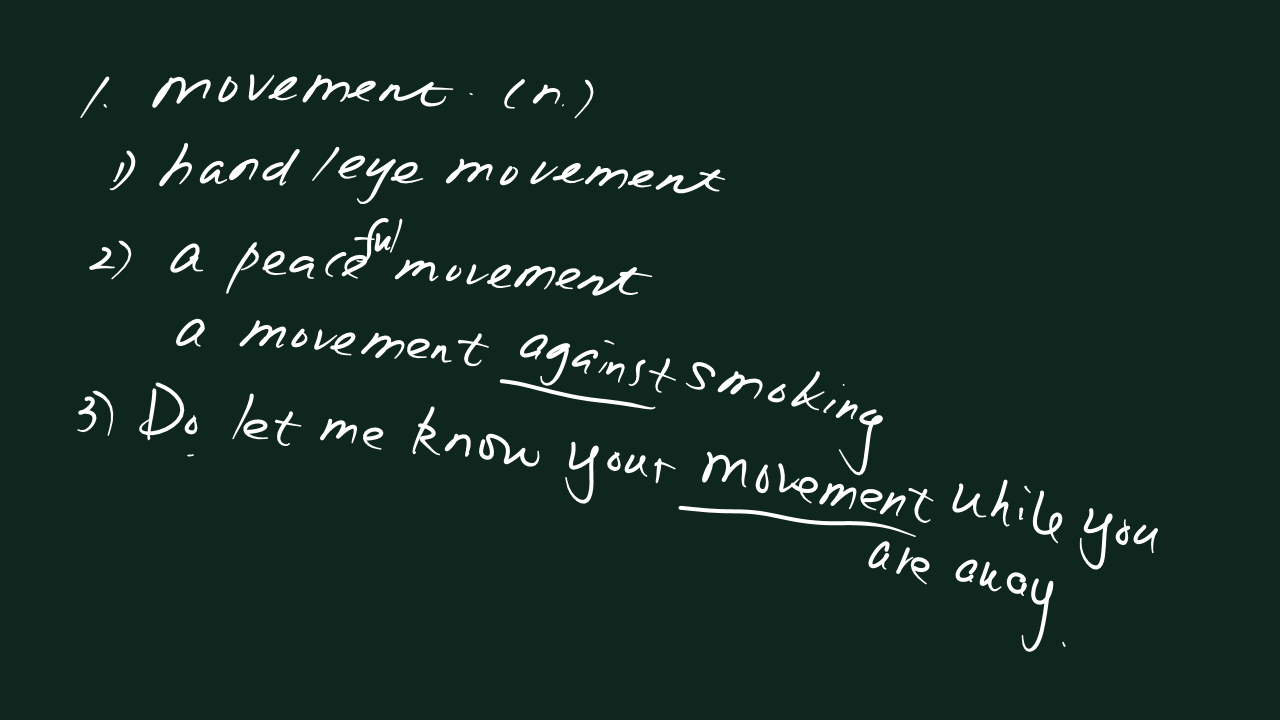 1. movement. (n.)
1) hand/eye movement
2) a peaceful movement
a movement against smoking
3) Do let me know your movement while you
are away.